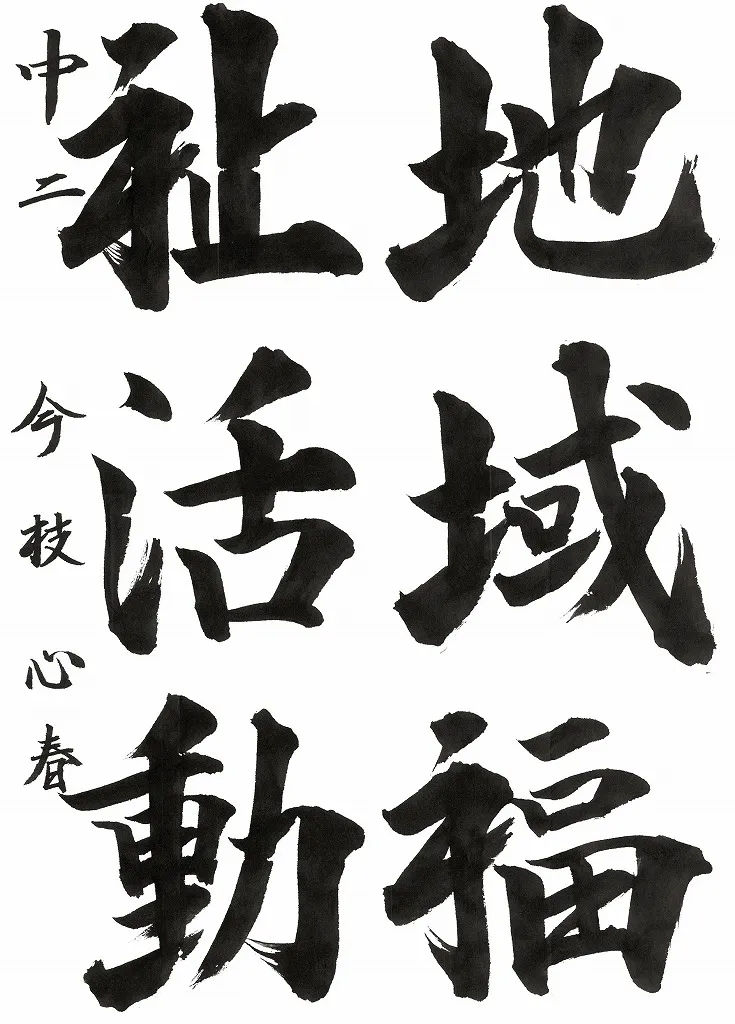 地域福
祉活動
中二 今枝心春